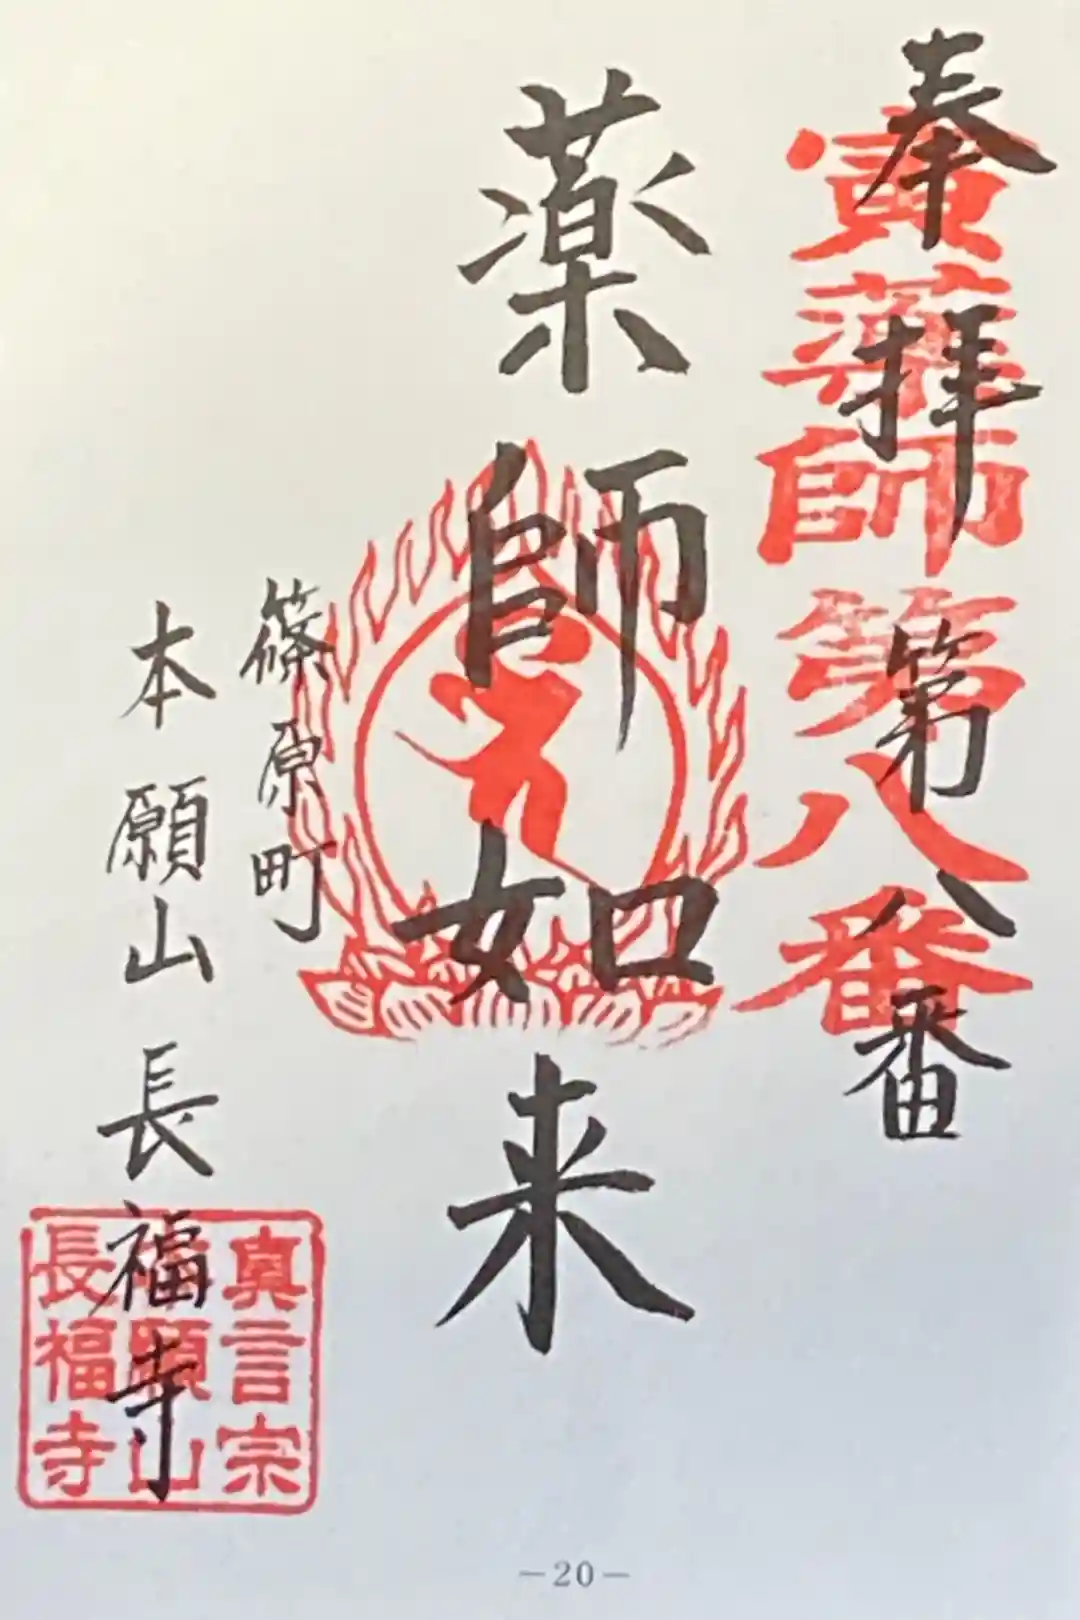 奉拝第八番
寅薬師第八番
薬師如来
篠原町
本願山長福寺
真言宗
本願山
長福寺
－20－